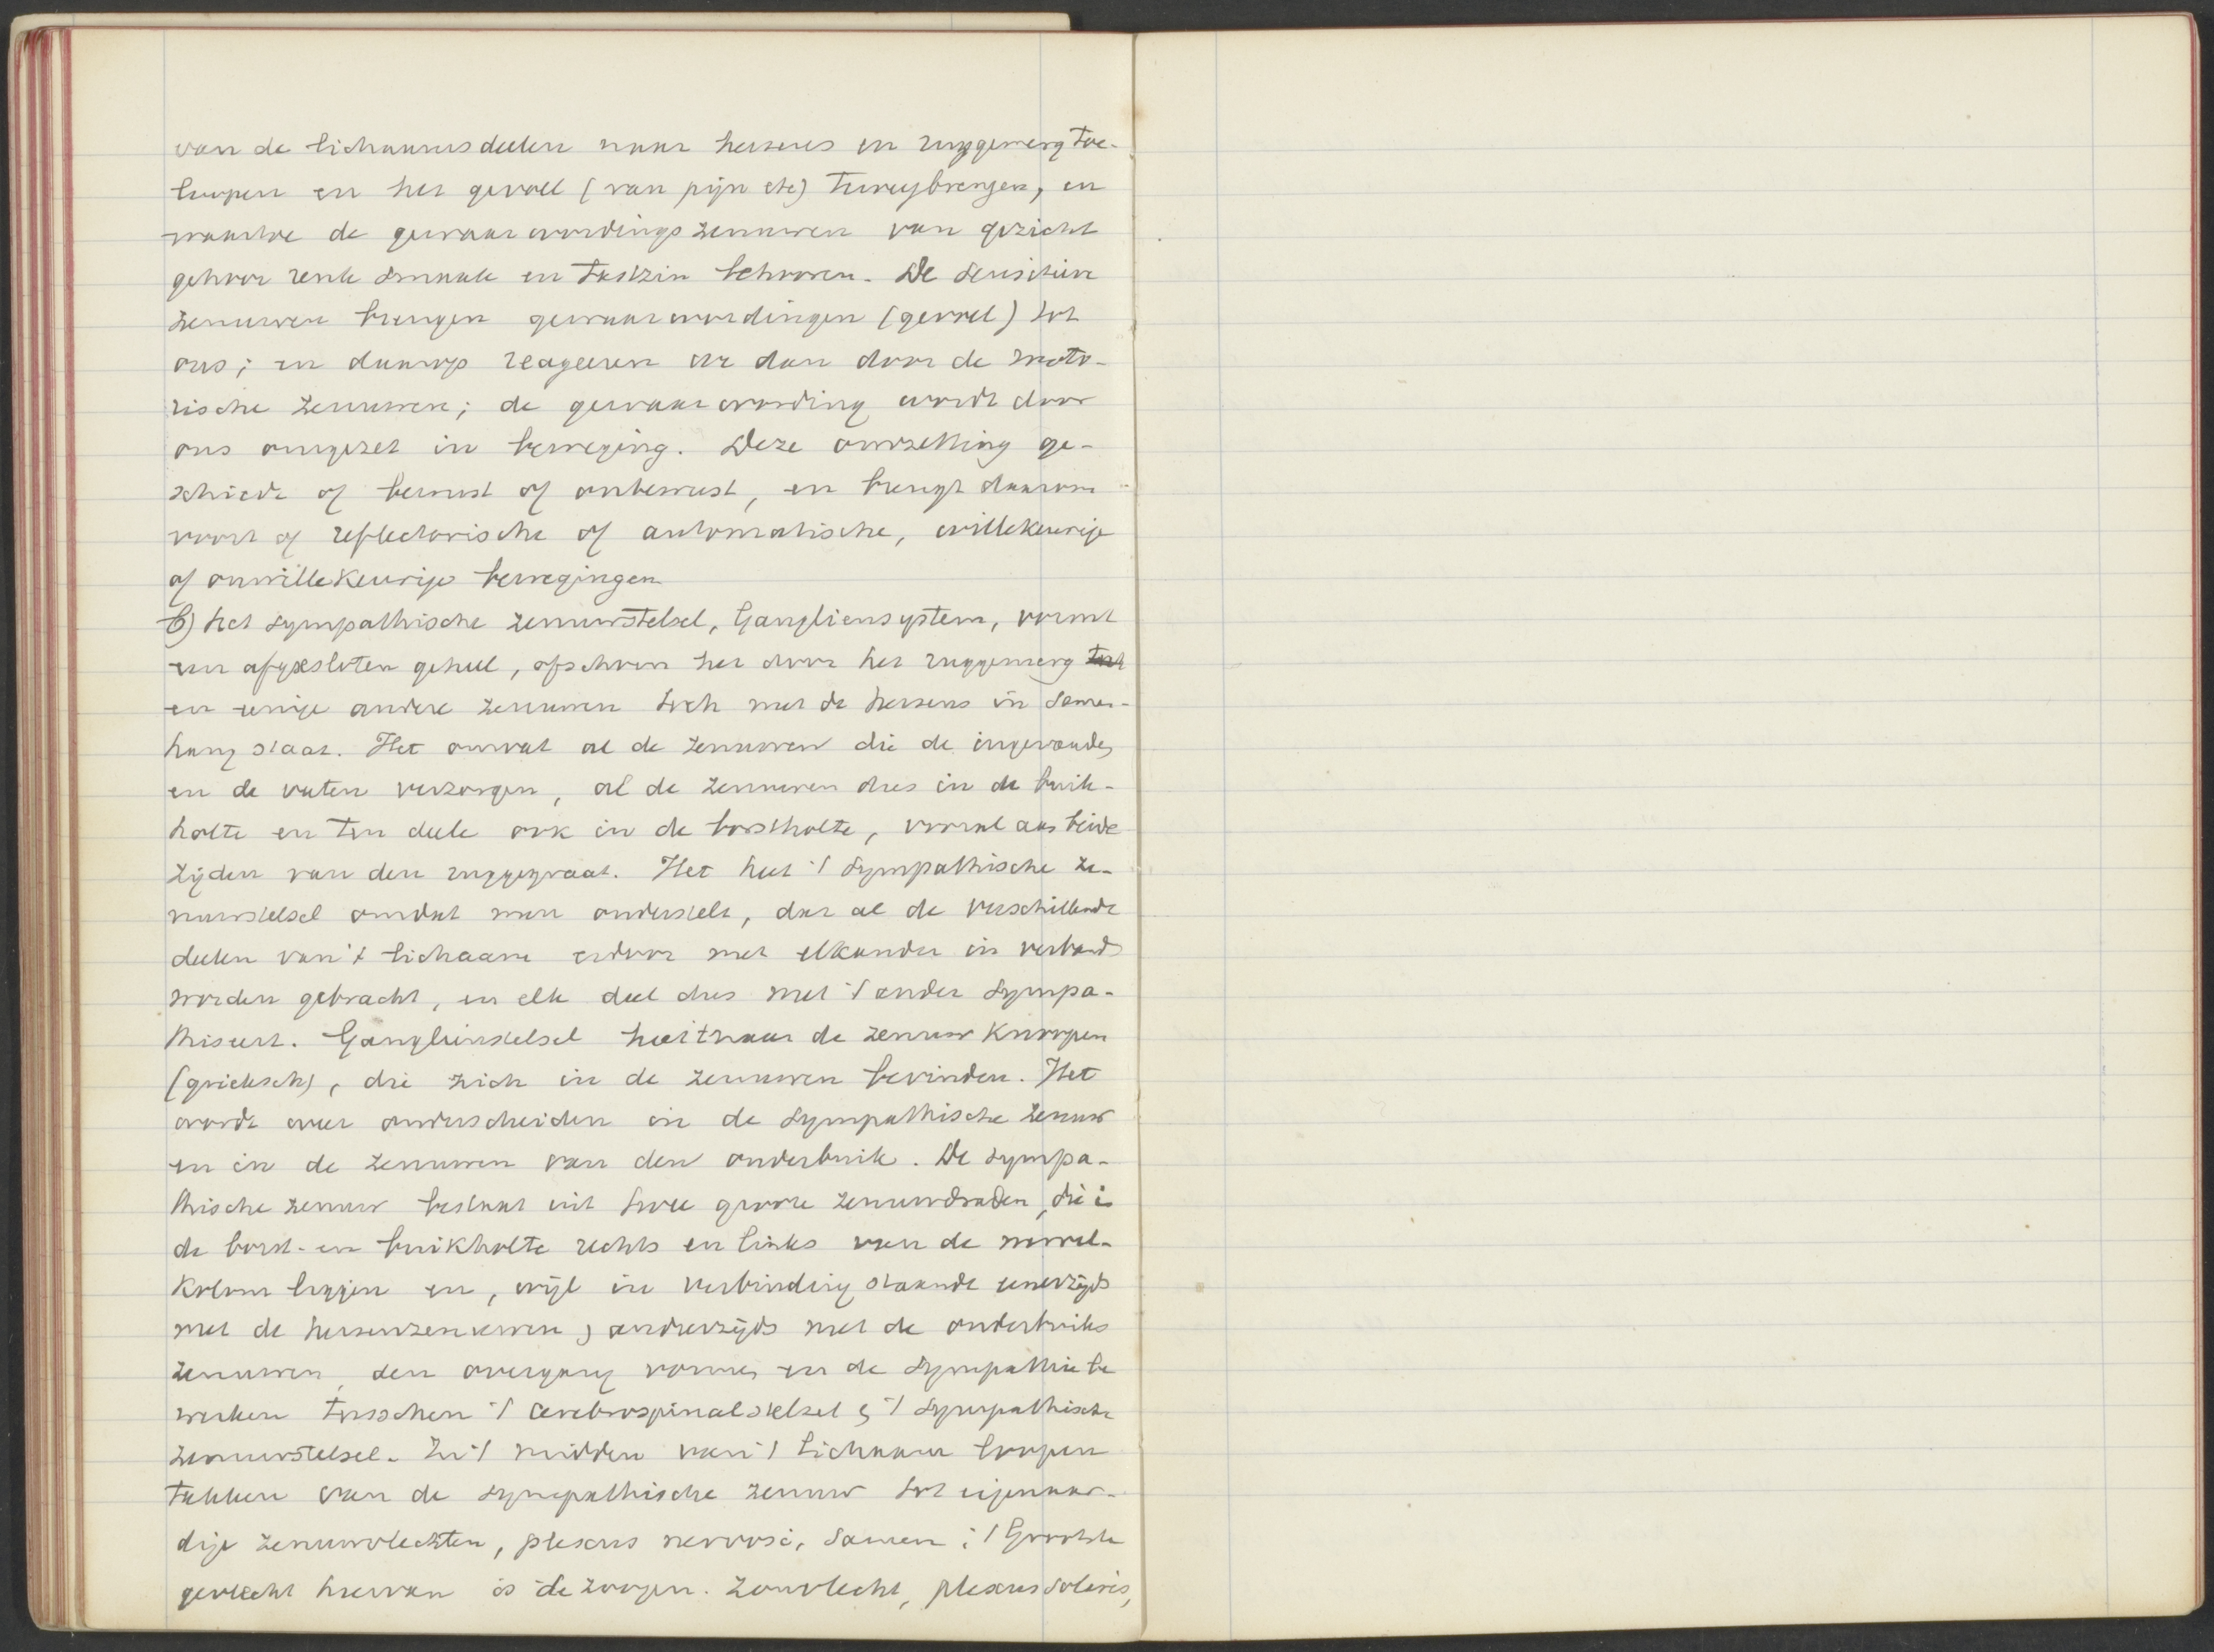 van de lichaamsdeelen naar hersens en ruggemerg toe-
loopen en het gevoel (van pijn etc) teweegbrengen, en
waartoe de gewaarwordingszenuwen van gezicht
gehoor reuk smaak en tastzin behooren. De sensitieve
zenuwen brengen gewaarwordingen (gevoel) tot
ons; en daarop reageeren we dan door de moto-
rische zenuwen; de gewaarwording wordt door
ons omgezet in beweging. Deze omzetting ge-
schiedt of bewust of onbewust, en brengt daarom
voort of reflectorische of automatische, willekeurige
of onwillekeurige bewegingen
b) het sympathische zenuwstelsel, Gangliensystem, vormt
een afgesloten geheel, ofschoon het door het ruggemerg toch
en eenige andere zenuwen toch met de hersens in samen-
hang staat. Het omvat al de zenuwen die de ingewanden
en de vaten verzorgen, al de zenuwen dus in de buik-
holte en ten deele ook in de borstholte, vooral aan beide
zijden van den ruggegraat. Het heet 't sympathische ze-
nuwstelsel omdat men onderstelt, dat al de verschillende
deelen van 't lichaam erdoor met elkander in verband
worden gebracht, en elk deel dus met 't ander sympa-
thiseert. Ganglienstelsel heet naar de zenuwknoopen
(grieksch), die zich in de zenuwen bevinden. Het
wordt weer onderscheiden in de sympathische zenuw
en in de zenuwen van den onderbuik. De sympa-
thische zenuw bestaat uit twee groote zenuwdraden, die in
de borst- en buikholte rechts en links van de wervel-
kolom liggen en, wijl in verbinding staande eenerzijds
met de hersenzenuwen, anderzijds met de onderbuiks
zenuwen, den overgang vormen en de sympathie be
werken tusschen 't cerebrospinaalstelsel en 't sympathische
zenuwstelsel. In 't midden van 't lichaam loopen
takken van de sympathische zenuw tot eigenaar-
dige zenuwvlechten, plexus nervosi, samen; 't Grootste
gevlecht hiervan is de zoogen. zonvlecht, plexus solaris,